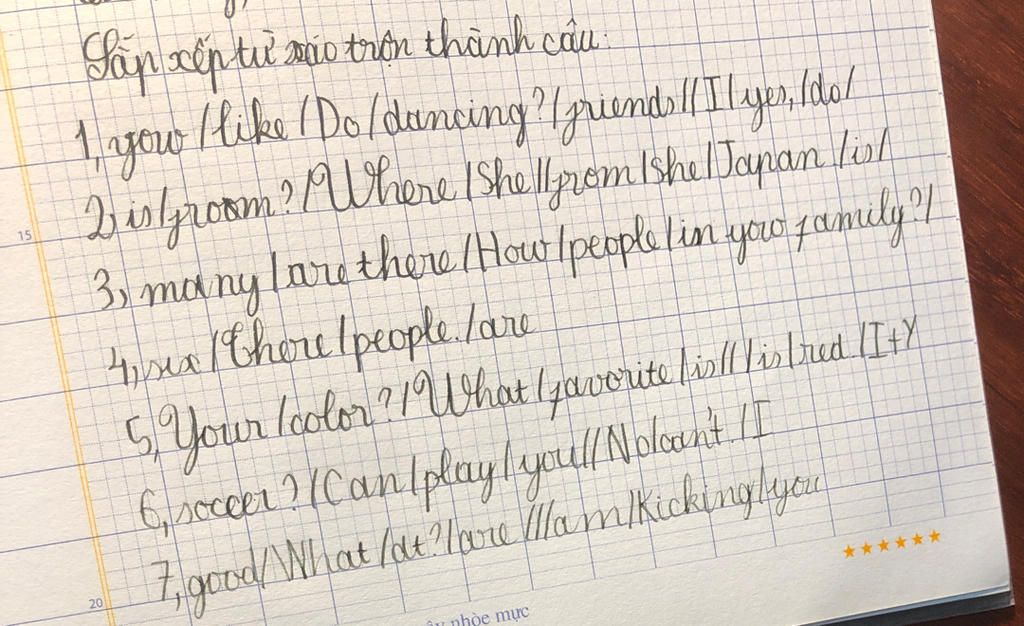 Sắp xếp từ xáo trộn thành câu:
1, you / like / Do / dancing? / friends // I / yes, / do /
2, is / froom? / Where / She // from / she / Japan / is /
3, many / are there / How / people / in your family? /
4, sex / There / people. / are
5, Your / color? / What / favorite / is // / is / red. / It
6, soccer? / Can / play / you // / No / can't. / I
15
7, good / What / at? / are // / I am / Kicking / you
20
nhòe mực